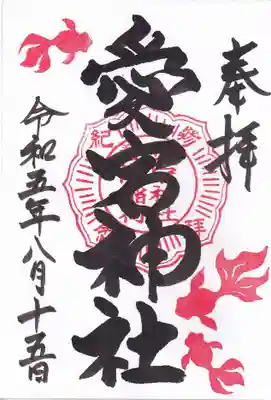 奉拝
愛宕神社
令和五年八月十五日